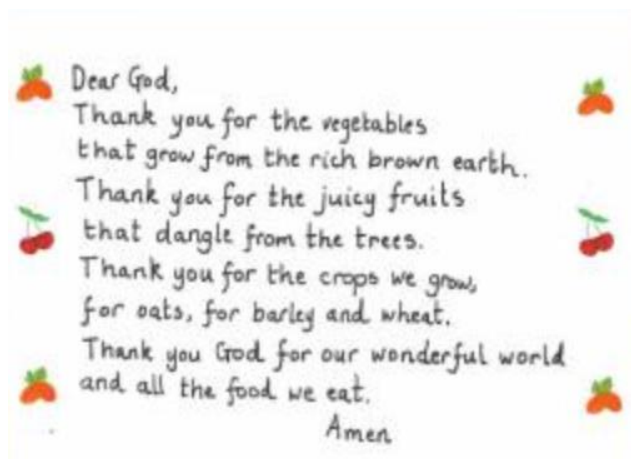 Dear God,
Thank you for the vegetables
that grow from the rich brown earth.
Thank you for the juicy fruits
that dangle from the trees.
Thank you for the crops we grow,
for oats, for barley and wheat.
Thank you God for our wonderful world
and all the food we eat.
Amen